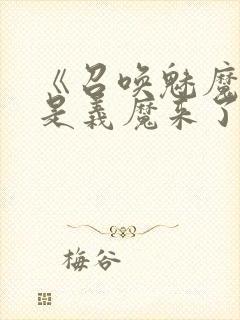 《召唤魅魔
是义魔来了
梅谷